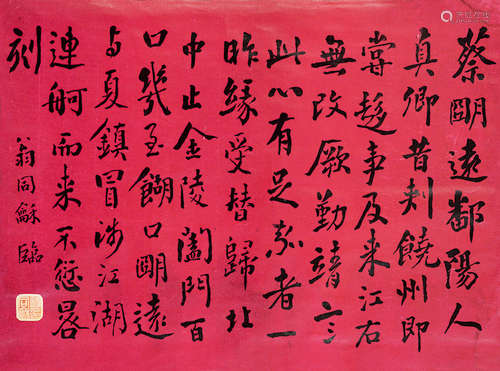 蔡明遠鄱陽人
真卿昔刺饒州即
嘗趍事及来江右
無改厥勤靖言
此心有足嘉者一
昨緣受替歸北
中止金陵闔門百
口幾至餬口明遠
与夏鎮冒涉江湖
連舸而来不愆晷
刻
翁同龢臨